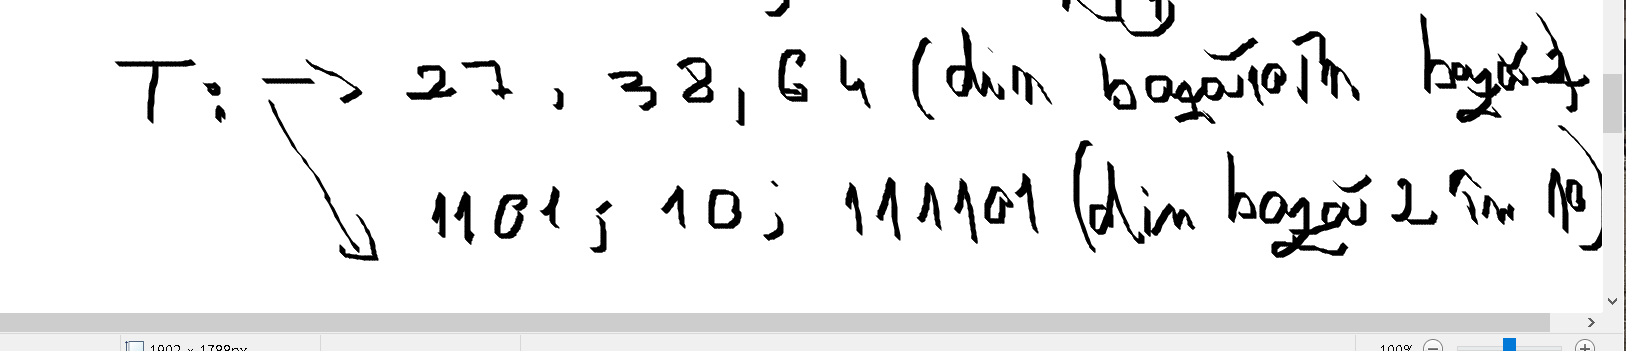 T: → 27, 38, 64 (din bază 10 în bază 2)
1101; 10; 111101 (din bază 2 în 10)
1902 × 1788px 100%